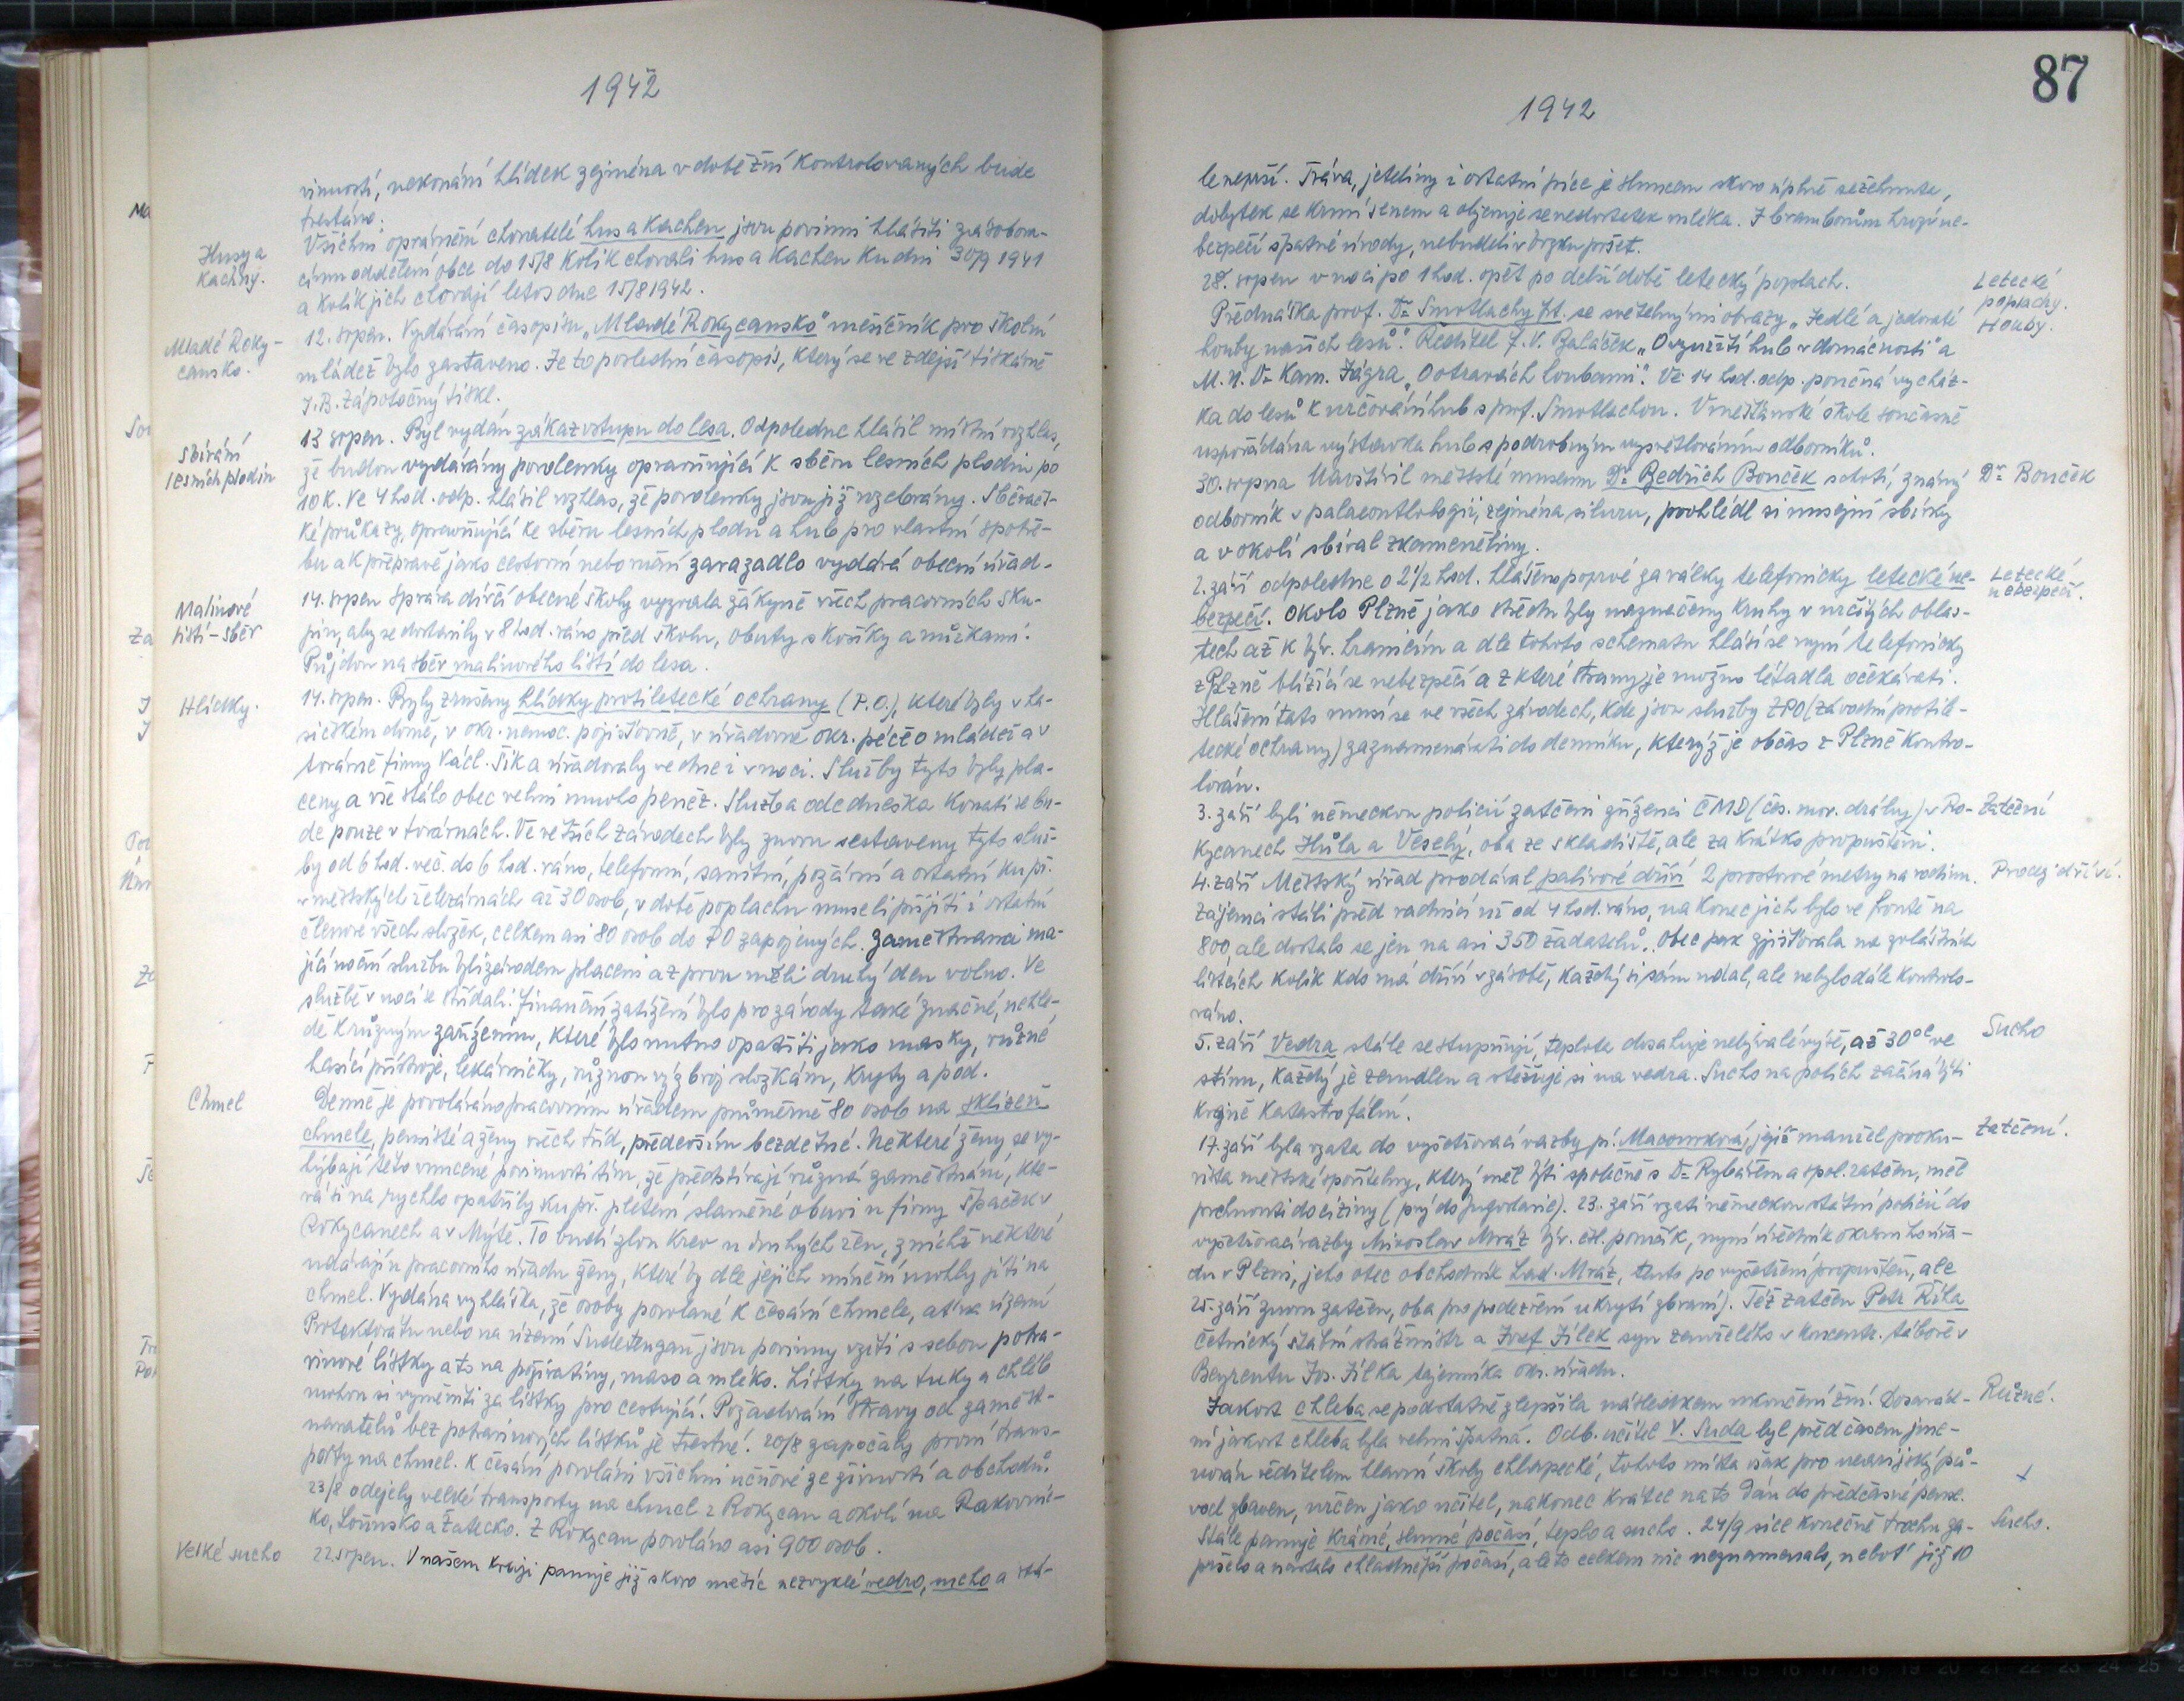 1942
vinností, nekonání hlídek zejména v době žní kontrolovaných bude
trestáno.
Husy a
kachny.
Všichni oprávnění chovatelé hus a kachen jsou povinni hlásiti zásobova-
címu oddělení obce do 15/8 kolik chovali hus a kachen ku dni 30/9 1941
a kolik jich chovají letos dne 15/8 1942.
Mladé Roky-
cansko.
12. srpen. Vydávání časopisu „Mladé Rokycansko" měsíčník pro školní
mládež bylo zastaveno. Je to poslední časopis, který se ve zdejší tiskárně
J. B. Zápotočný tiskl.
Sbírání
lesních plodin
13 srpen. Byl vydán zákaz vstupu do lesa. Odpoledne hlásil místní rozhlas,
že budou vydávány povolenky opravňující k sběru lesních plodin po
10 K. Ve 4 hod. odp. hlásil rozhlas, že povolenky jsou již rozebrány. Sběrač-
ké průkazy, opravňující ke sběru lesních plodů a hub pro vlastní spotře-
bu a k přepravě jako cestovní nebo ruční zavazadlo vydává obecní úřad.
Malinové
listí - sběr
14. srpen Správa dívčí obecné školy vyzvala žákyně všech pracovních sku-
pin, aby se dostavily v 8 hod. ráno před školu, obuty s košíky a nůžkami.
Půjdou na sběr malinového listí do lesa.
Hlídky.
14. srpen. Byly zrušeny hlídky protiletecké ochrany (P.O.), které byly v ha-
sičském domě, v okr. nemoc. pojišťovně, v úřadovně okr. péče o mládež a v
továrně firmy Václ. Šik a úřadovaly ve dne i v noci. Služby tyto byly pla-
ceny a vše stálo obec velmi mnoho peněz. Služba ode dneška konati se bu-
de pouze v továrnách. Ve větších závodech byly znovu sestaveny tyto služ-
by od 6 hod. več. do 6 hod. ráno, telefonní, sanitní, požární a ostatní ku př.
v městských železárnách až 30 osob, v době poplachu museli přijíti i ostatní
členové všech složek, celkem asi 80 osob do PO zapojených. Zaměstnanci ma-
jící noční službu byli závodem placeni a z prvu měli druhý den volno. Ve
službě v noci se střídali. Finanční zatížení bylo pro závody také značné, nehle-
dě k různým zařízením, které bylo nutno opatřiti jako masky, různé
hasící přístroje, lékárničky, různou výzbroj složkám, kryty a pod.
Chmel
Denně je povoláváno pracovním úřadem průměrně 80 osob na sklizeň
chmele, pensisté a ženy všech tříd, především bezdětné. Některé ženy se vy-
hýbají této vnucené povinnosti tím, že předstírají různá zaměstnání, kte-
rá si na rychlo opatřily ku př. pletení slaměné obuvi u firmy Špaček v
Rokycanech a v Mýtě. To budí zlou krev u druhých žen, z nichž některé
udávají u pracovního úřadu ženy, které by dle jejich mínění mohly jíti na
chmel. Vydána vyhláška, že osoby povolané k česání chmele, ať na území
Protektorátu nebo na území Sudetengau jsou povinny vzíti s sebou potra-
vinové lístky a to na poživatiny, maso a mléko. Lístky na tuky a chléb
mohou si vyměniti za lístky pro cestující. Požadování stravy od zaměst-
navatelů bez potravinových lístků je trestné. 20/8 započaly první trans-
porty na chmel. K česání povoláni všichni učňové ze živností a obchodů.
23/8 odejely velké transporty na chmel z Rokycan a okolí na Rakovnic-
ko, Lounsko a Žatecko. Z Rokycan povoláno asi 900 osob.
Velké sucho
22 srpen. V našem kraji panuje již skoro měsíc nezvyklé vedro, sucho a stá-
87
1942
le neprší. Tráva, jeteliny i ostatní píce je sluncem skoro úplně sežehnuta,
dobytek se krmí senem a objevuje se nedostatek mléka. I bramborům hrozí ne-
bezpečí špatné úrody, nebude-li v brzku pršet.
Letecké
poplachy.
Houby.
28. srpen v noci po 1 hod. opět po delší době letecký poplach.
Přednáška prof. Dr Smotlachy frt. se světelnými obrazy „Jedlé a jedovaté
houby našich lesů". Ředitel F. V. Baláček „O využití hub v domácnosti" a
M. U. Dr Kam. Jágra „O otravách houbami". Ve 14 hod. odp. poučná vycház-
ka do lesů k určování hub s prof. Smotlachou. V měšťanské škole současně
uspořádána výstavka hub s podrobným vysvětlováním odborníků.
Dr Bouček
30. srpna Navštívil městské museum Dr Bedřich Bouček známý
odborník v palaeontologii, zejména siluru, prohlédl si musejní sbírky
a v okolí sbíral zkameněliny.
Letecké
nebezpečí.
2. září odpoledne o 2 1/2 hod. hlášeno poprvé za války telefonicky letecké ne-
bezpečí. Okolo Plzně jako středu byly naznačeny kruhy v určitých oblas-
tech až k býv. hranicím a dle tohoto schematu hlásí se nyní telefonicky
z Plzně blížící se nebezpečí a z které strany je možno létadla očekávati.
Hlášení tato musí se ve všech závodech, kde jsou služby ZPO (závodní protile-
tecké ochrany) zaznamenávati do denníku, kterýž je občas z Plzně kontro-
lován.
Zatčení
3. září byli německou policií zatčeni zřízenci ČMD (čes. mor. dráhy) v Ro-
kycanech Hůla a Veselý, oba ze skladiště, ale za krátko propuštěni.
Prodej dříví.
4. září Městský úřad prodával palivové dříví 2 prostorové metry na rodinu.
Zájemci stáli před radnicí už od 4 hod. ráno, na konec jich bylo ve frontě na
800, ale dostalo se jen na asi 350 žadatelů. Obec pak zjišťovala na zvláštních
lístcích kolik kdo má dříví v zásobě, každý si sám udal, ale nebylo dále kontrolo-
váno.
Sucho
5. září Vedra stále se stupňují, teplota dosahuje nebývalé výše, až 30°C ve
stínu, každý je zemdlen a stěžuje si na vedra. Sucho na polích začíná býti
krajně katastrofální.
Zatčení.
17. září byla vzata do vyšetřovací vazby pí. Macourková, jejíž manžel proku-
rista městské spořitelny, který měl býti společně s Dr Rybářem a spol. zatčen, měl
prchnouti do ciziny (prý do Jugoslavie). 23. září vzati německou státní policií do
vyšetřovací vazby Miroslav Mráz býv. čsl. poručík, nyní úředník okresního úřa-
du v Plzni, jeho otec obchodník Lad. Mráz, tento po vyšetření propuštěn, ale
25. září znovu zatčen, oba pro podezření ukrytí zbraní). Též zatčen Petr Říha
četnický štábní strážmistr a Josef Jílek syn zemřelého v koncentr. táboře v
Bayreutu Jos. Jílka tajemníka okr. úřadu.
Různé.
Jakost chleba se podstatně zlepšila následkem ukončení žní. Dosavad-
ní jakost chleba byla velmi špatná. Odb. učitel V. Suda byl před časem jme-
nován ředitelem hlavní školy chlapecké, tohoto místa však pro nearijský pů-
vod zbaven, určen jako učitel, na konec krátce na to dán do předčasné pense.
Sucho.
Stále panuje krásné, slunné počasí, teplo a sucho. 24/9 sice konečně trochu za-
pršelo a nastalo chladnější počasí, ale to celkem nic neznamenalo, neboť již 10